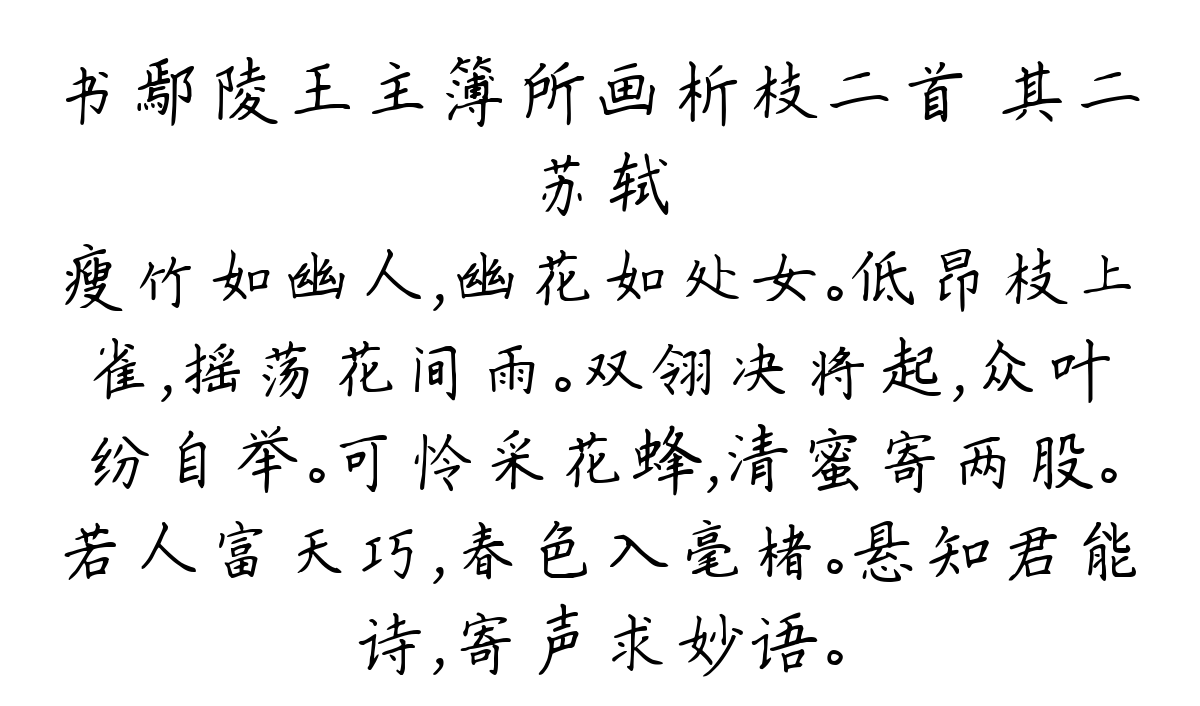 书鄢陵王主簿所画析枝二首 其二
苏轼
瘦竹如幽人,幽花如处女。低昂枝上
雀,摇荡花间雨。双翎决将起,众叶
纷自举。可怜采花蜂,清蜜寄两股。
若人富天巧,春色入毫楮。悬知君能
诗,寄声求妙语。